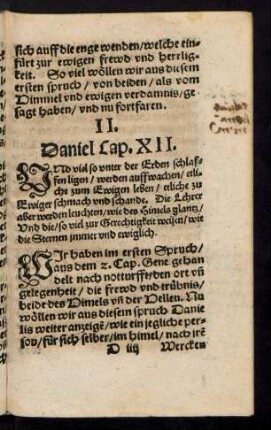 sich auff die enge wenden/welche ein-
fürt zur ewigen frewd vnd herrlig-
keit. So viel wöllen wir aus diesem
ersten spruch/ von beiden/ als vom
Himmel vnd ewigen verdamnis/ ge-
sagt haben/ vnd nu fortfaren.
II.
Daniel Cap. XII.
VNd viel so vnter der Erden schlaf-
fen ligen/ werden auffwachen/ etli-
che zum Ewigen leben/ etliche zu
Ewiger schmach vnd schande. Die Lehrer
aber werden leuchten/ wie des Himels glantz/
Vnd die/ so viel zur Gerechtigkeit weisen/ wie
die Sternen jmmer vnd ewiglich.
WIr haben im ersten Spruch/
aus dem 2. Cap. Gene gehan
delt nach notturfft/ den ort vñ
gelegenheit/ die frewd vnd trübnis/
beide des Himels vñ der Hellen. Nu
wöllen wir aus diesem spruch Danie
lis weiter anzeigẽ/ wie ein jegliche per-
son/ für sich selber/ im himel/ nach irẽ
D iiij Wercken